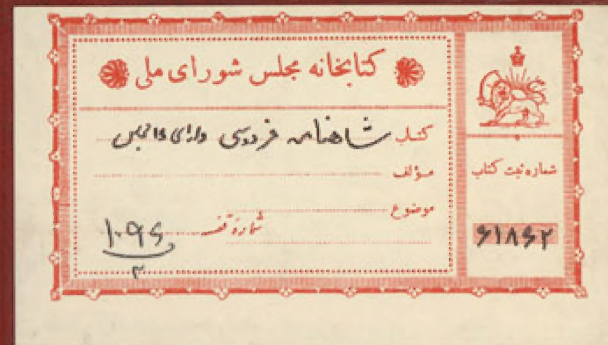 کتابخانه مجلس شورای ملی
کتاب شاهنامه فردوسی دارای ۵۵ مجلس
مؤلف
موضوع
شماره قفسه
۱۰۹۶
۲
شماره ثبت کتاب
۶۱۸۶۲